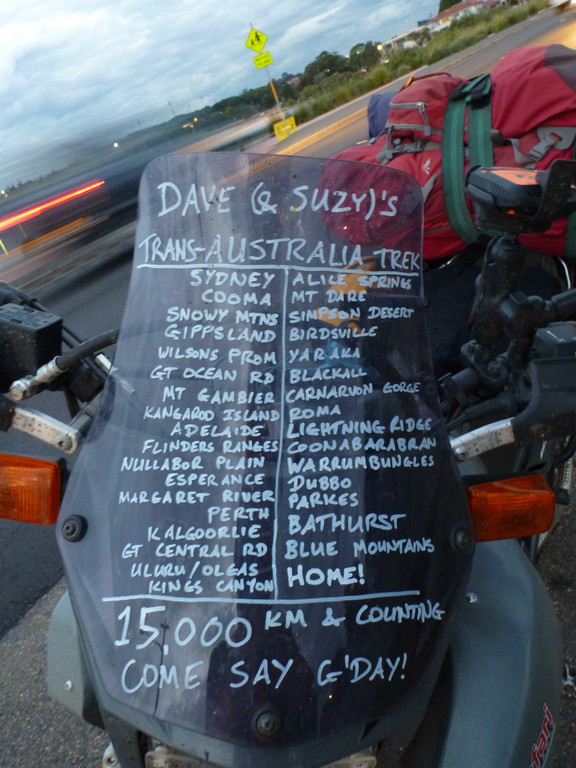 DAVE (& SUZY)'S
TRANS-AUSTRALIA TREK
SYDNEY
COOMA
SNOWY MTNS
GIPPSLAND
WILSONS PROM
GT OCEAN RD
MT GAMBIER
KANGAROO ISLAND
ADELAIDE
FLINDERS RANGES
NULLABOR PLAIN
ESPERANCE
MARGARET RIVER
PERTH
KALGOORLIE
GT CENTRAL RD
ULURU/OLGAS
KINGS CANYON
ALICE SPRINGS
MT DARE
SIMPSON DESERT
BIRDSVILLE
YARAKA
BLACKALL
CARNARVON GORGE
ROMA
LIGHTNING RIDGE
COONABARABRAN
WARRUMBUNGLES
DUBBO
PARKES
BATHURST
BLUE MOUNTAINS
HOME!
15,000 KM & COUNTING
COME SAY G'DAY!
safari